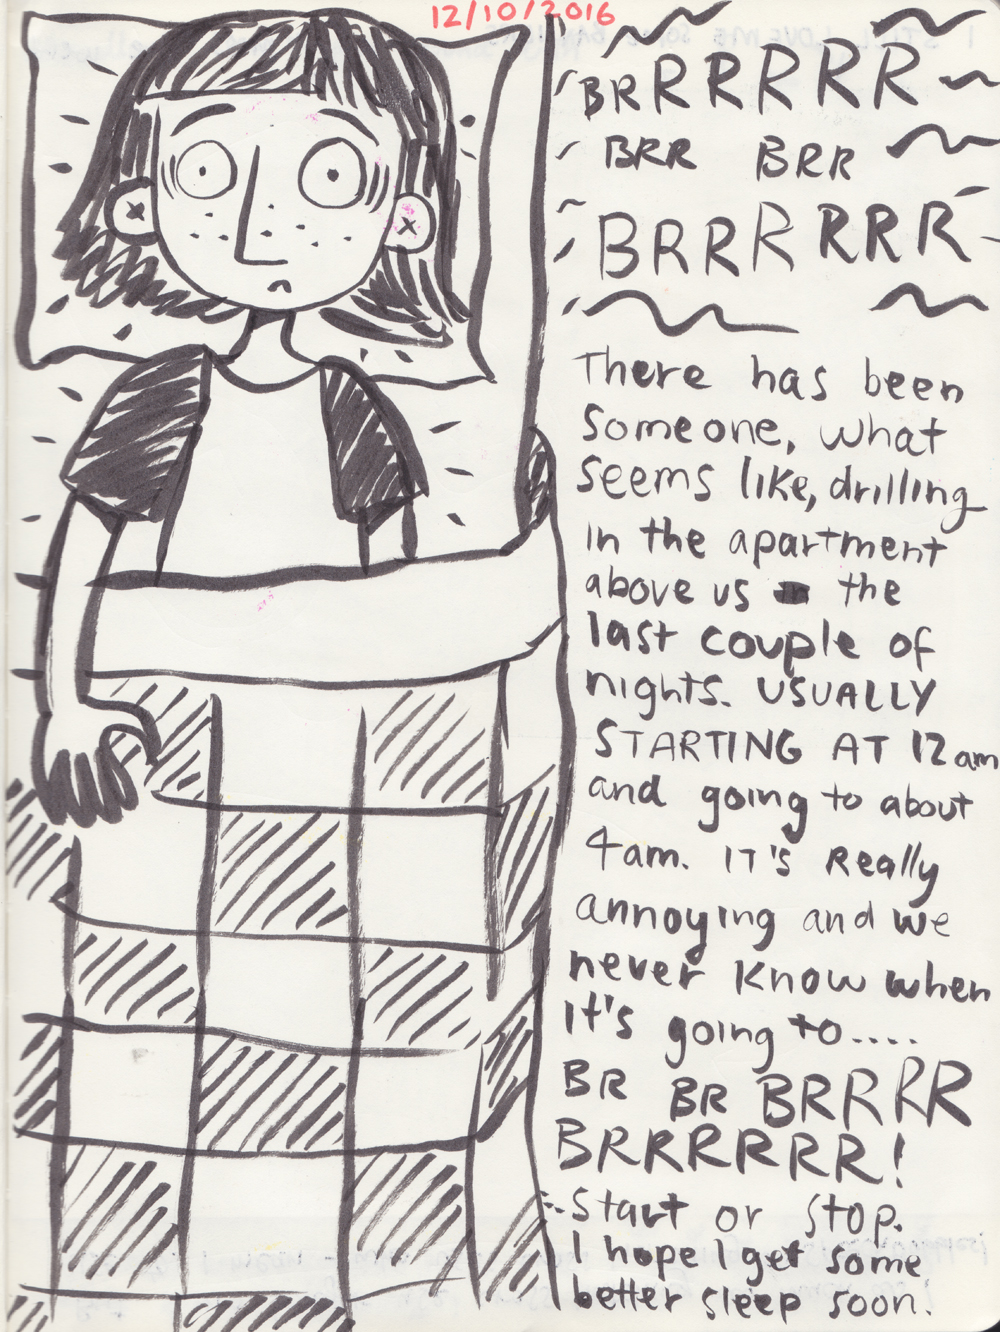 12/10/2016
BRRRRRR
BRR BRR
BRRRRRR
There has been
someone, what
seems like, drilling
in the apartment
above us the
last couple of
nights. USUALLY
STARTING AT 12am
and going to about
4am. IT'S Really
annoying and we
never know when
it's going to....
BR BR BRRRR
BRRRRRR!
Start or stop.
I hope I get some
better sleep soon.